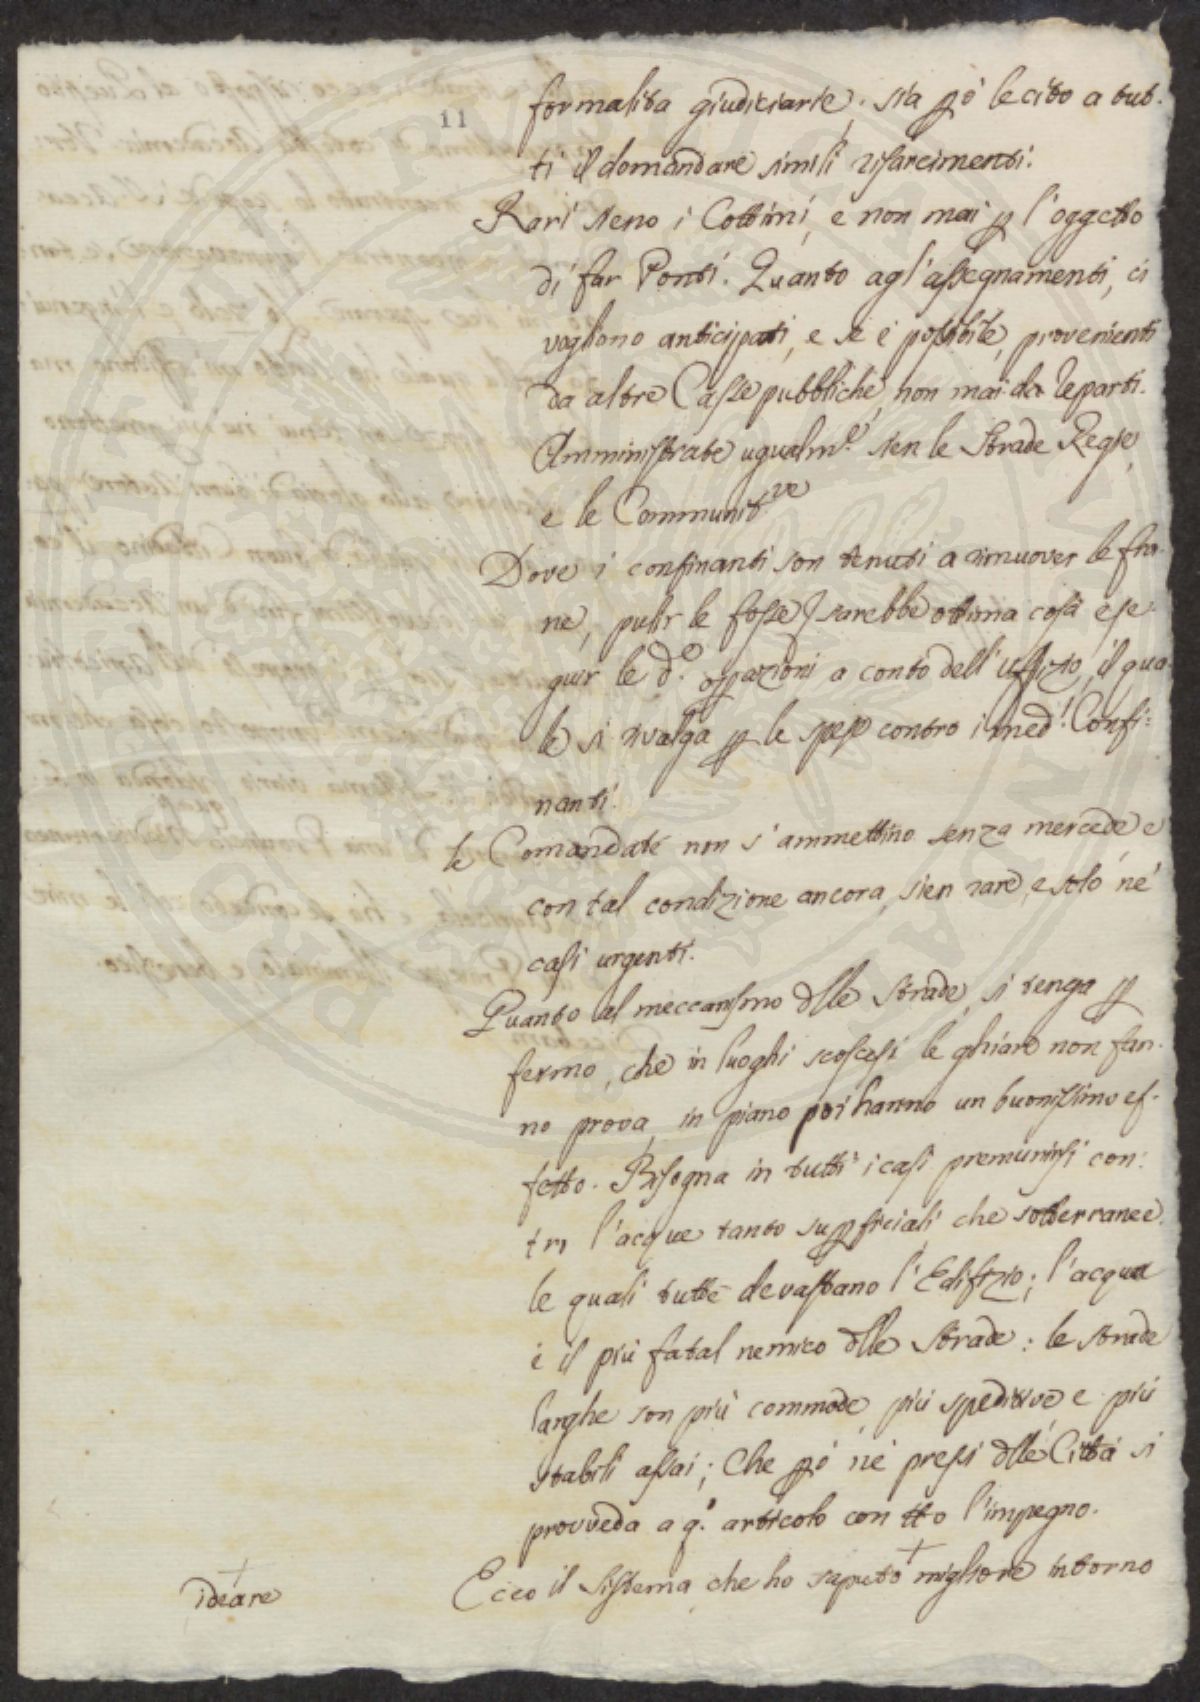 11
formalità giudiziarie; sia pò lecito a tut-
ti il domandare simili risarcimenti.
Rari sieno i Cottimi, e non mai p l'oggetto
di far Ponti. Quanto agl'assegnamenti, ci
vogliono anticipati, e se è possibile, provenienti
da altre Casse pubbliche, non mai da reparti.
Amministrate ugualm.e sien le Strade Regie,
e le Communit.ve
Dove i confinanti son tenuti a rimuover le fra-
ne, pulir le fosse sarebbe ottima cosa ese-
guir le d.e opazioni a conto dell'uffizio, il qua-
le si rivalga p le spese contro i med.i Confi=
nanti.
le Comandate non s'ammettino senza mercede e
con tal condizione ancora, sien rare, e solo ne'
casi urgenti.
Quanto al meccanismo dlle strade, si tenga p
fermo, che in luoghi scoscesi le ghiare non fan-
no prova, in piano poi hanno un buonissimo ef-
fetto. Bisogna in tutti i casi premunirsi con-
tro l'acque tanto supficiali, che sotterranee
le quali tutte devastano l'Edifizio; l'acqua
è il più fatal nemico dlle Strade: le strade
larghe son più commode più speditive e più
stabili assai; Che pò ne' pressi dlle Città si
provveda a q.o articolo con tto l'impegno.
Ecco il sistema che ho saputo + migliore intorno
+
ideare